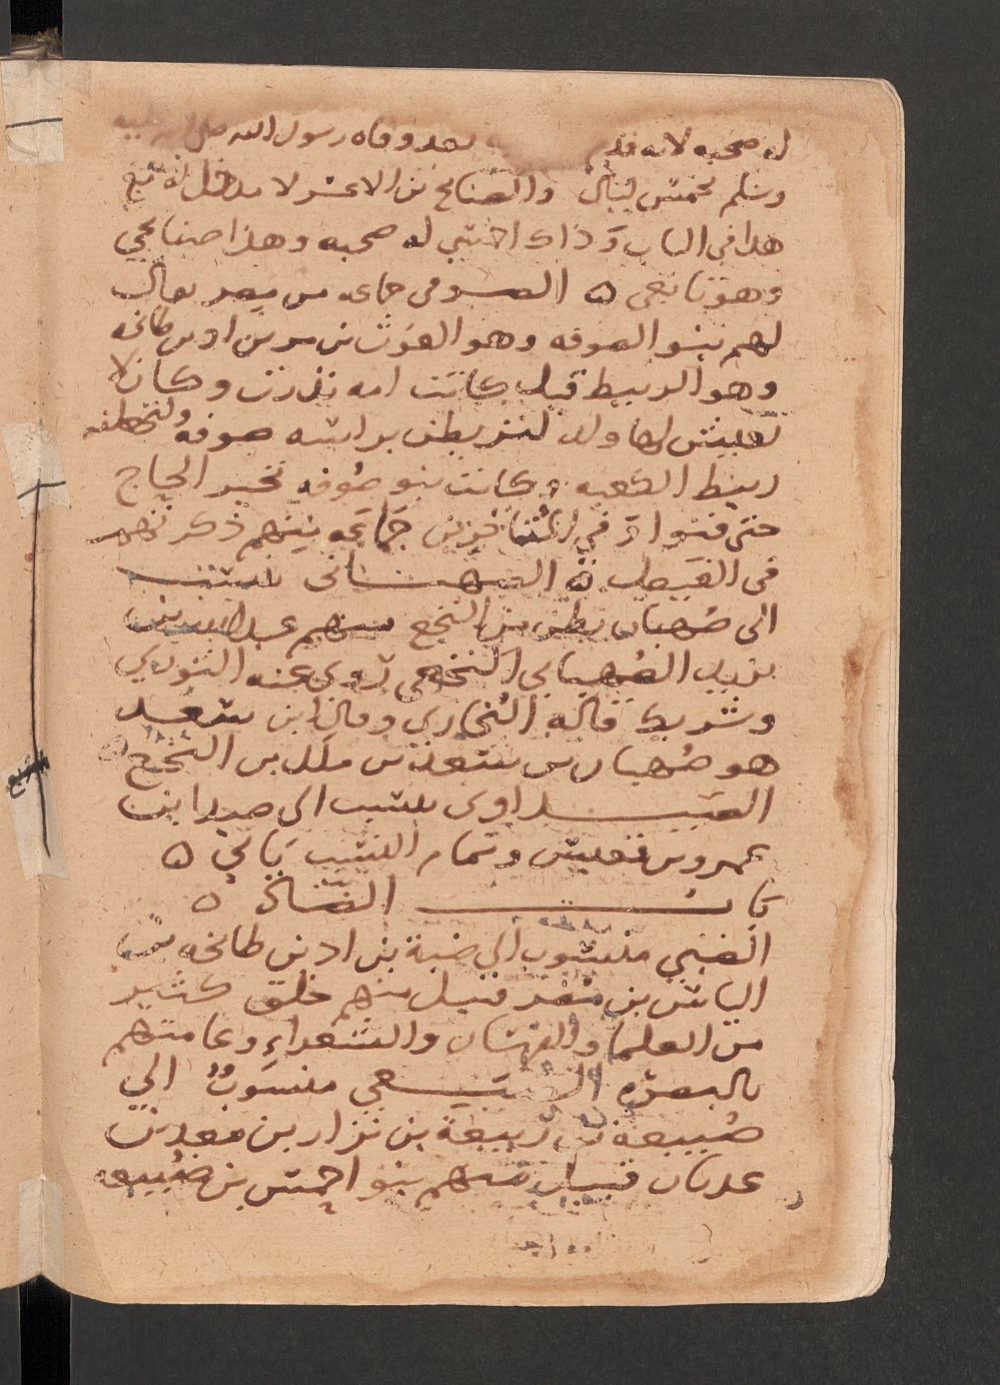 له صحبه لانه قدم بعد وفاه رسول الله صلى الله عليه
وسلم بخمس ليال والصنابح بن الاعسر لا يدخل
هذا في الباب وذاك احمسي له صحبه وهذا صنابحي
وهو تابعي ه الصوفي جماعه من مضر يقال
لهم بنو الصوفه وهو الغوث بن مر بن اد بن طابخه
وهو الربيط قيل كانت امه نذرت وكان لا
يعيش لها ولد لتربطن براسه صوفه ولتجعلنه
ربيط الكعبه وكانت بنو صوفه تجيز الحاج
حتى فنوا وفي المتاخرين جماعه بينهم ذكرتهم
في الفيصل ه الصهباني ينسب
الى صهبان بطن من النخع منهم عبد الله بن
يزيد الصهباني النخعي روى عنه الثوري
وشريك قاله البخاري وقال ابن سعد
هو صهبان بن سعد بن ملك بن النخع
الصيداوي ينسب الى صيدا بن
عمرو بن قعين وتمام النسب ياتي ه
باب الضاد ه
الضبي منسوب الي ضبة بن اد بن طابخه بن
الياس بن مضر قبيل منهم خلق كثير
من العلما والفرسان والشعراء وعامتهم
بالبصره الضبيعي منسوب الي
ضبيعه بن ربيعة بن نزار بن معد بن
عدنان قبيل منهم بنو احمس بن ضبيعه